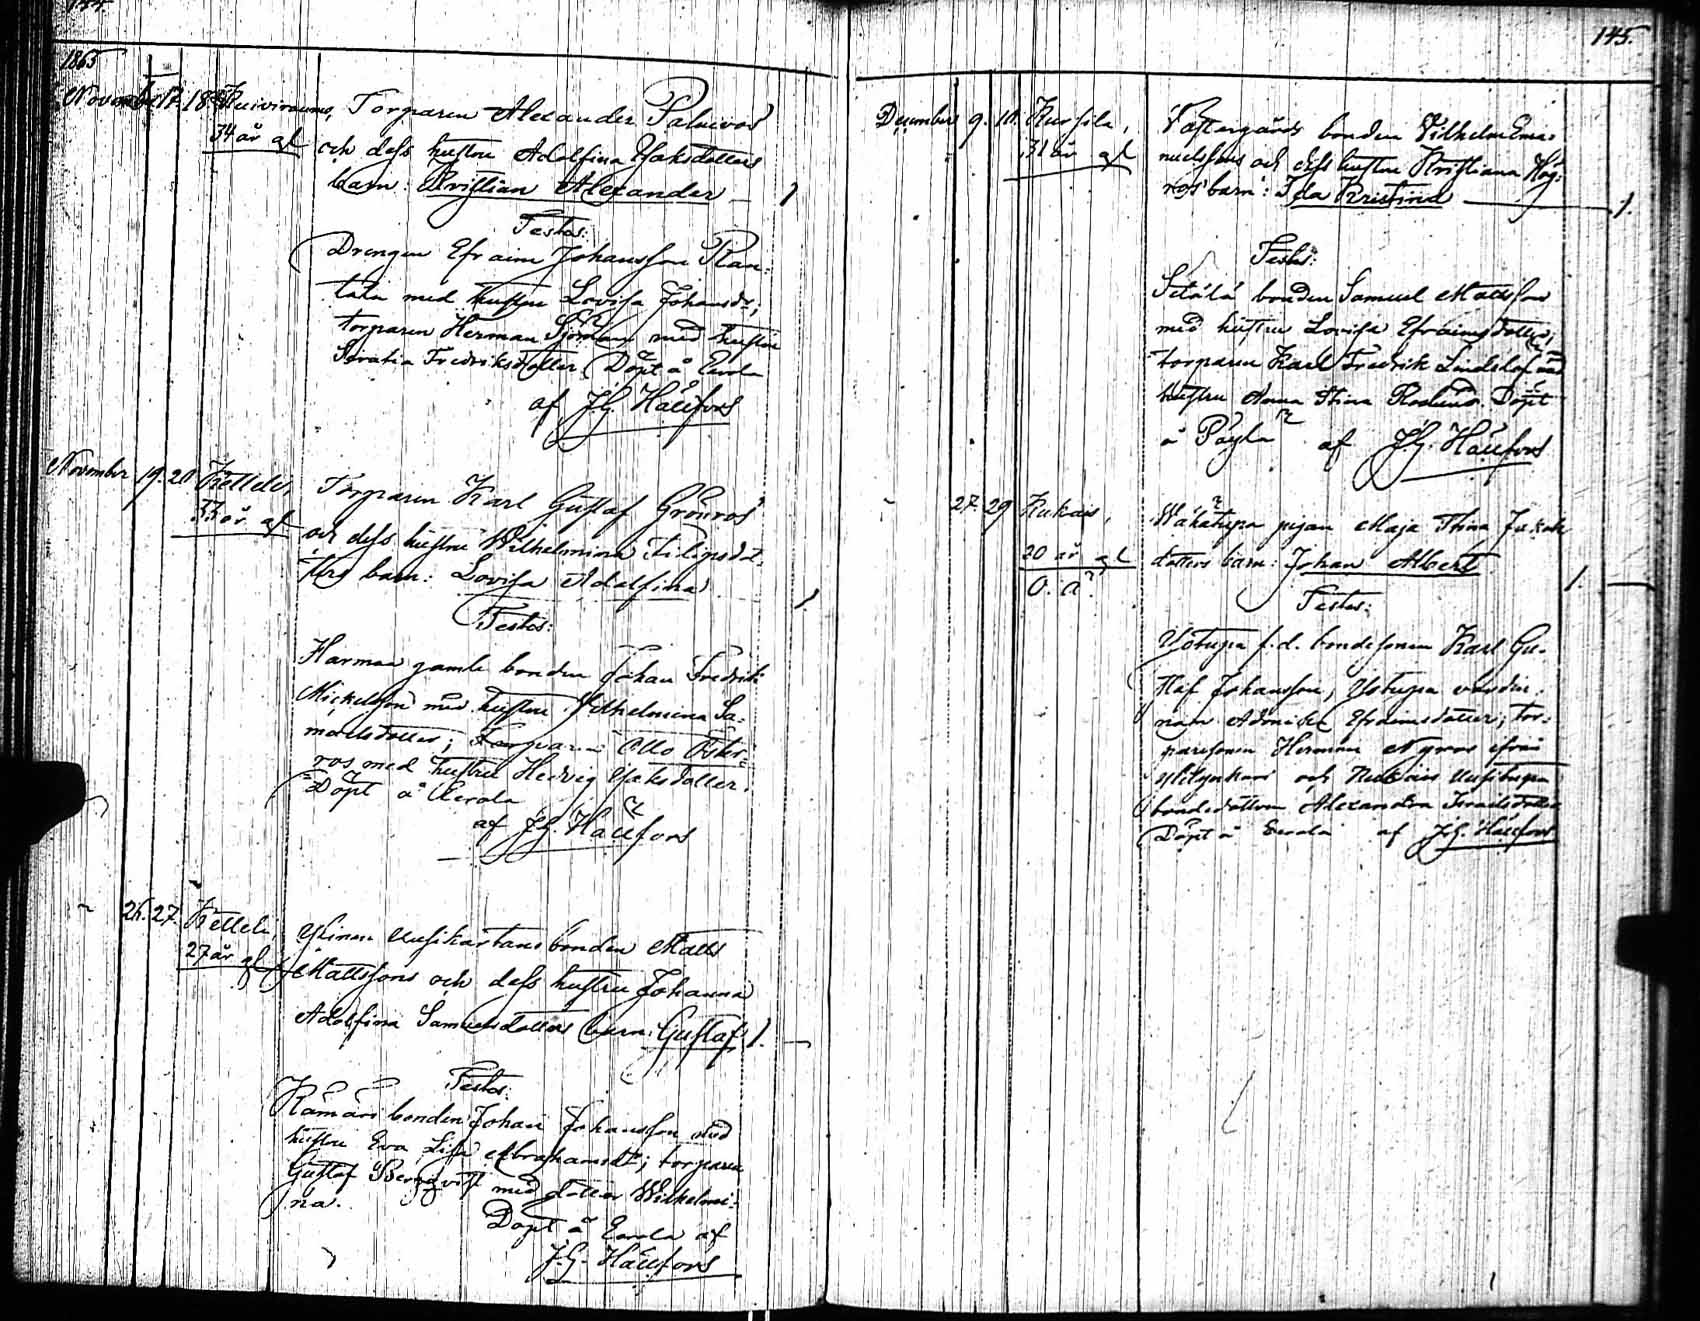 144
1865
November 17. 18. Kuiviraume,
34 år gl
Torparen Alexander Palmros
och dess hustru Adolfina Isaksdotters
barn: Kristian Alexander 1
Testes:
Drengen Efraim Johansson Ran-
tala med hustru Lovisa Johansdr;
torparen Herman Sjöman med hustru
Serafia Fredriksdotter Döpt å Eurola
af J.G. Hällfors
November 19. 20 Kelleli,
33 år gl
Torparen Karl Gustaf Grönros
och dess hustru Wilhelmina Filipsdot-
ters barn: Lovisa Adolfina 1
Testes:
Harmaa gamle bonden Johan Fredrik
Mickelsson med hustru Wilhelmina Sa-
muelsdotter; Torparen Otto Öster-
ros med hustru Hedvig Isaksdotter.
Döpt å Eurola
af J.G. Hällfors
26. 27. Kelleli,
27 år gl
Uusikartano bonden Matts
Mattssons och dess hustru Johanna
Adolfina Samuelsdotters barn: Gustaf 1.
Testes:
Kämäri bonden Johan Johansson med
hustru Eva Lisa Abrahamsdr; torparen
Gustaf Bergqvist med dotter Wilhelmi-
na.
Döpt å Eurola af
J.G. Hällfors
145.
December 9. 10. Kursila,
31 år gl
Västergårds bonden Vilhelm Ema-
nuelssons och dess hustru Kristiana Hög-
ros barn: Ida Kristina 1.
Testes:
Setälä bonden Samuel Mattsson
med hustru Lovisa Efraimsdotter;
torparen Karl Fredrik Lindelöf med
hustru Anna Stina Roslund. Döpt
å Pöylä af J.G. Hällfors
27. 29 Kukais,
20 år gl
O. ä.
Wähätupa pigan Maja Stina Jakobs
dotters barn: Johan Albert 1.
Testes:
Ystupa f.d. bondesonen Karl Gu-
staf Johansson, Ystupa värdin-
nan Adamika Efraimsdotter; tor-
paresonen Herman Nyros ifrån
Ylitynkari och Kukais Uusitupa
bondedottern Alexandra Israelsdotter
Döpt å Eurola af J.G. Hällfors